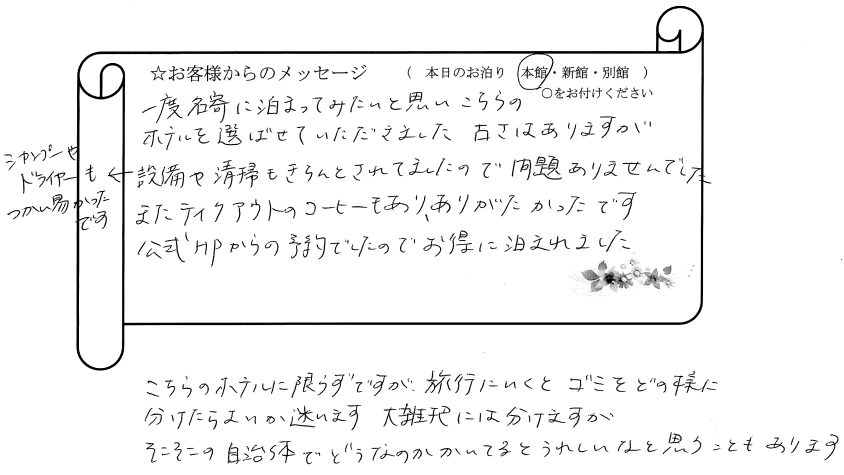 ☆お客様からのメッセージ （ 本日のお泊り 本館・新館・別館 ）
○をお付けください
一度名寄に泊まってみたいと思い こちらの
ホテルを選ばせていただきました 古さはありますが
設備や清掃もきちんとされてましたので問題ありませんでした
またテイクアウトのコーヒーもあり、ありがたかったです
公式HPからの予約でしたのでお得に泊まれました
シャンプーや
ドライヤーも ←
つかい易かった
です
こちらのホテルに限らずですが 旅行にいくと ゴミをどの様に
分けたらよいか迷います 大雑把には分けますが
そこそこの自治体でどうなのかかいてるとうれしいなと思うこともあります